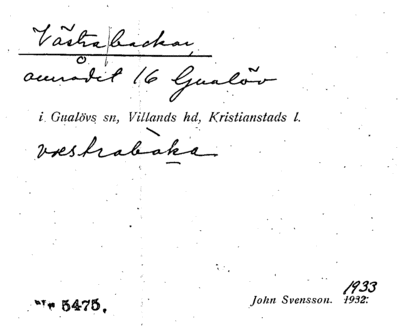 Västra backar,
området 16 Gualöv
i Gualövs sn, Villands hd, Kristianstads l.
væstrabaka
5475.
1933
John Svensson. 1932.